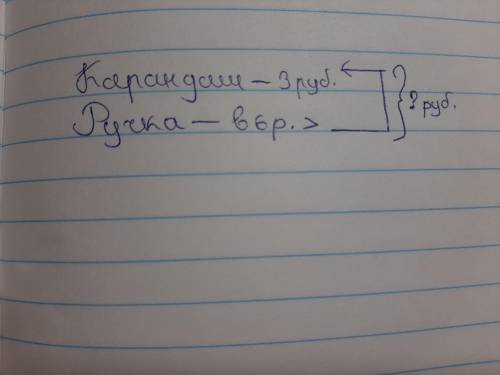 Карандаш – 3 руб.
Ручка – в 6 р. >
? руб.